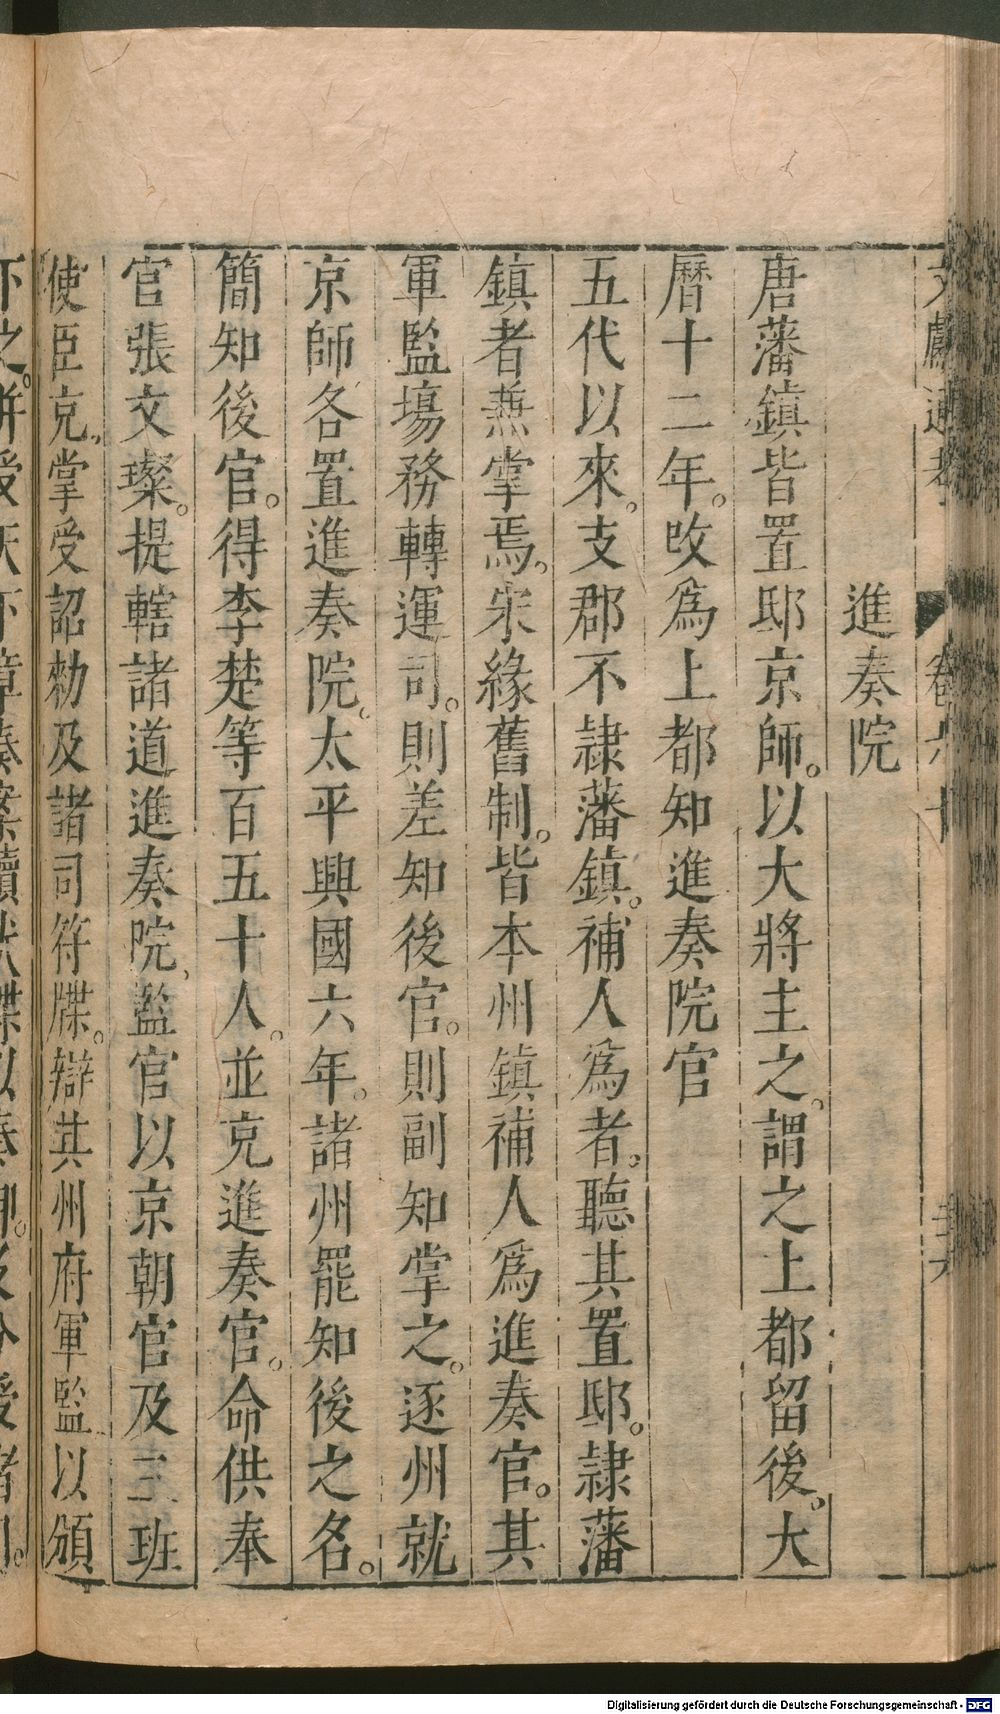 文獻通考 卷六十
進奏院
唐藩鎮皆置邸京師。以大將主之。謂之上都留後。大
曆十二年。改為上都知進奏院官
五代以來。支郡不隷藩鎮。補人為者。聽其置邸。隷藩
鎮者兼掌焉。宋緣舊制。皆本州鎮補人為進奏官。其
軍監塲務轉運司。則差知後官。則副知掌之。逐州就
京師各置進奏院。太平興國六年。諸州罷知後之名。
簡知後官。得李楚等百五十人。並充進奏官。命供奉
官張文璨。提轄諸道進奏院。監官以京朝官及三班
使臣充。掌受詔勑及諸司符牒。辯其州府軍監以頒
下之。併受天下章奏案牘狀牒以奏御。及分受諸司。
Digitalisierung gefördert durch die Deutsche Forschungsgemeinschaft - DFG